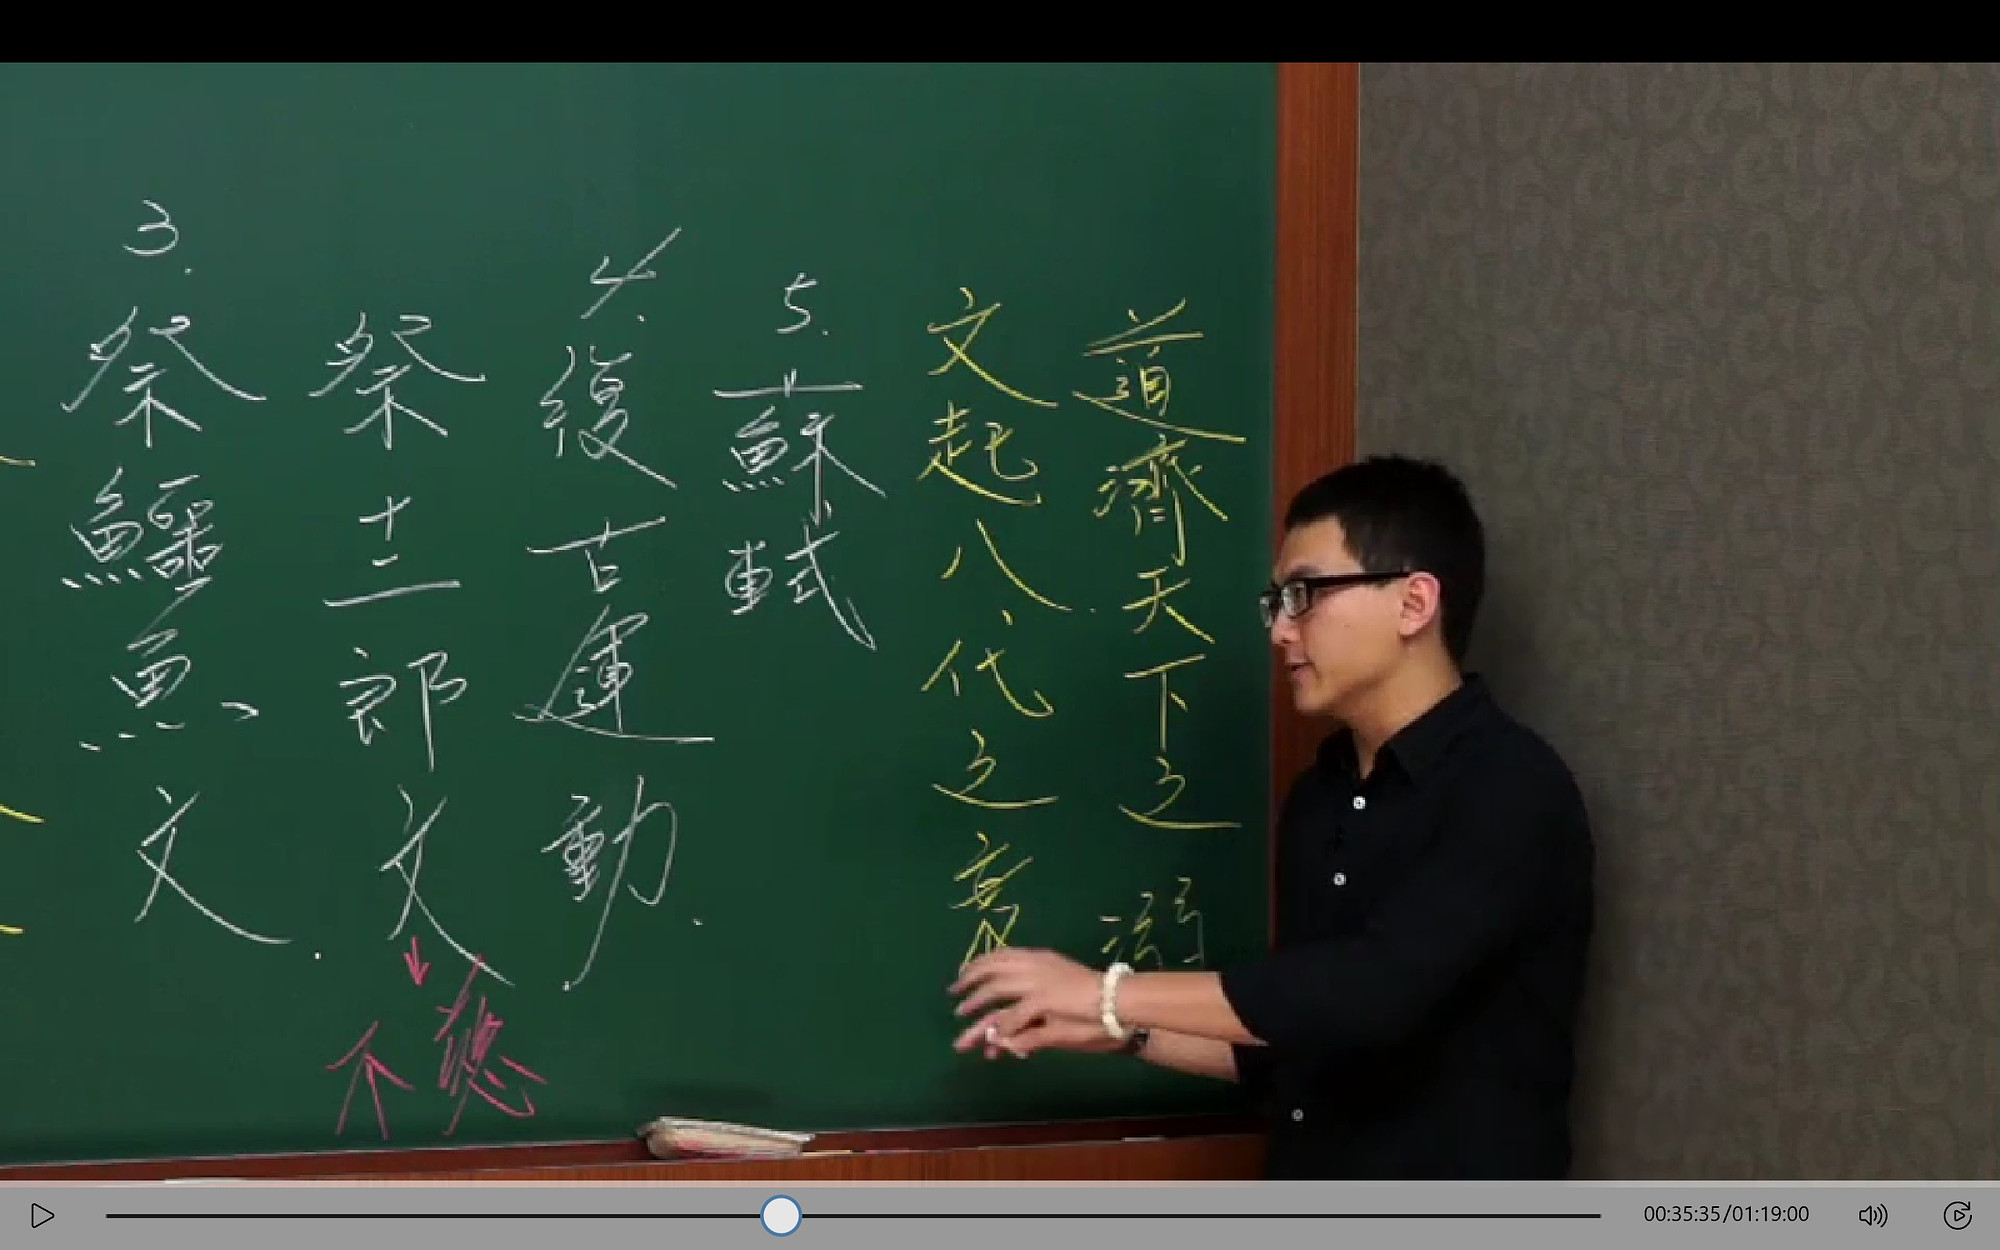 3.
祭鱷魚文.
祭十二郎文
不
4.
復古運動.
5.
蘇軾
文起八代之衰
道濟天下之溺
00:35:35/01:19:00